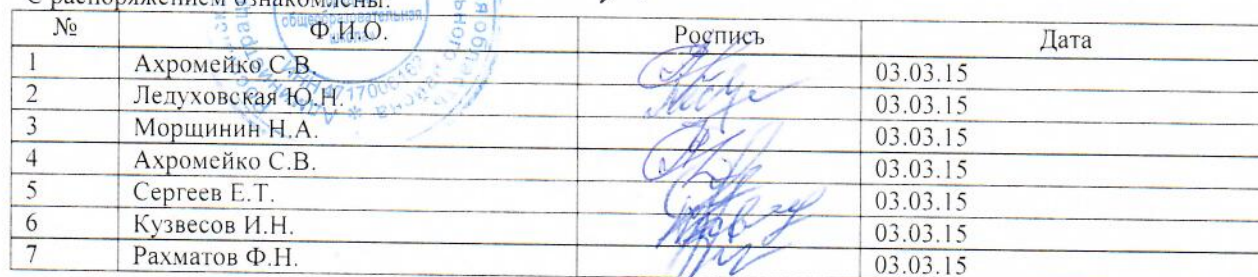 С распоряжением ознакомлены:
№ Ф.И.О. Роспись Дата
1 Ахромейко С.В. 03.03.15
2 Ледуховская Ю.Н. 03.03.15
3 Морщинин Н.А. 03.03.15
4 Ахромейко С.В. 03.03.15
5 Сергеев Е.Т. 03.03.15
6 Кузвесов И.Н. 03.03.15
7 Рахматов Ф.Н. 03.03.15
общеобразовательная
школа